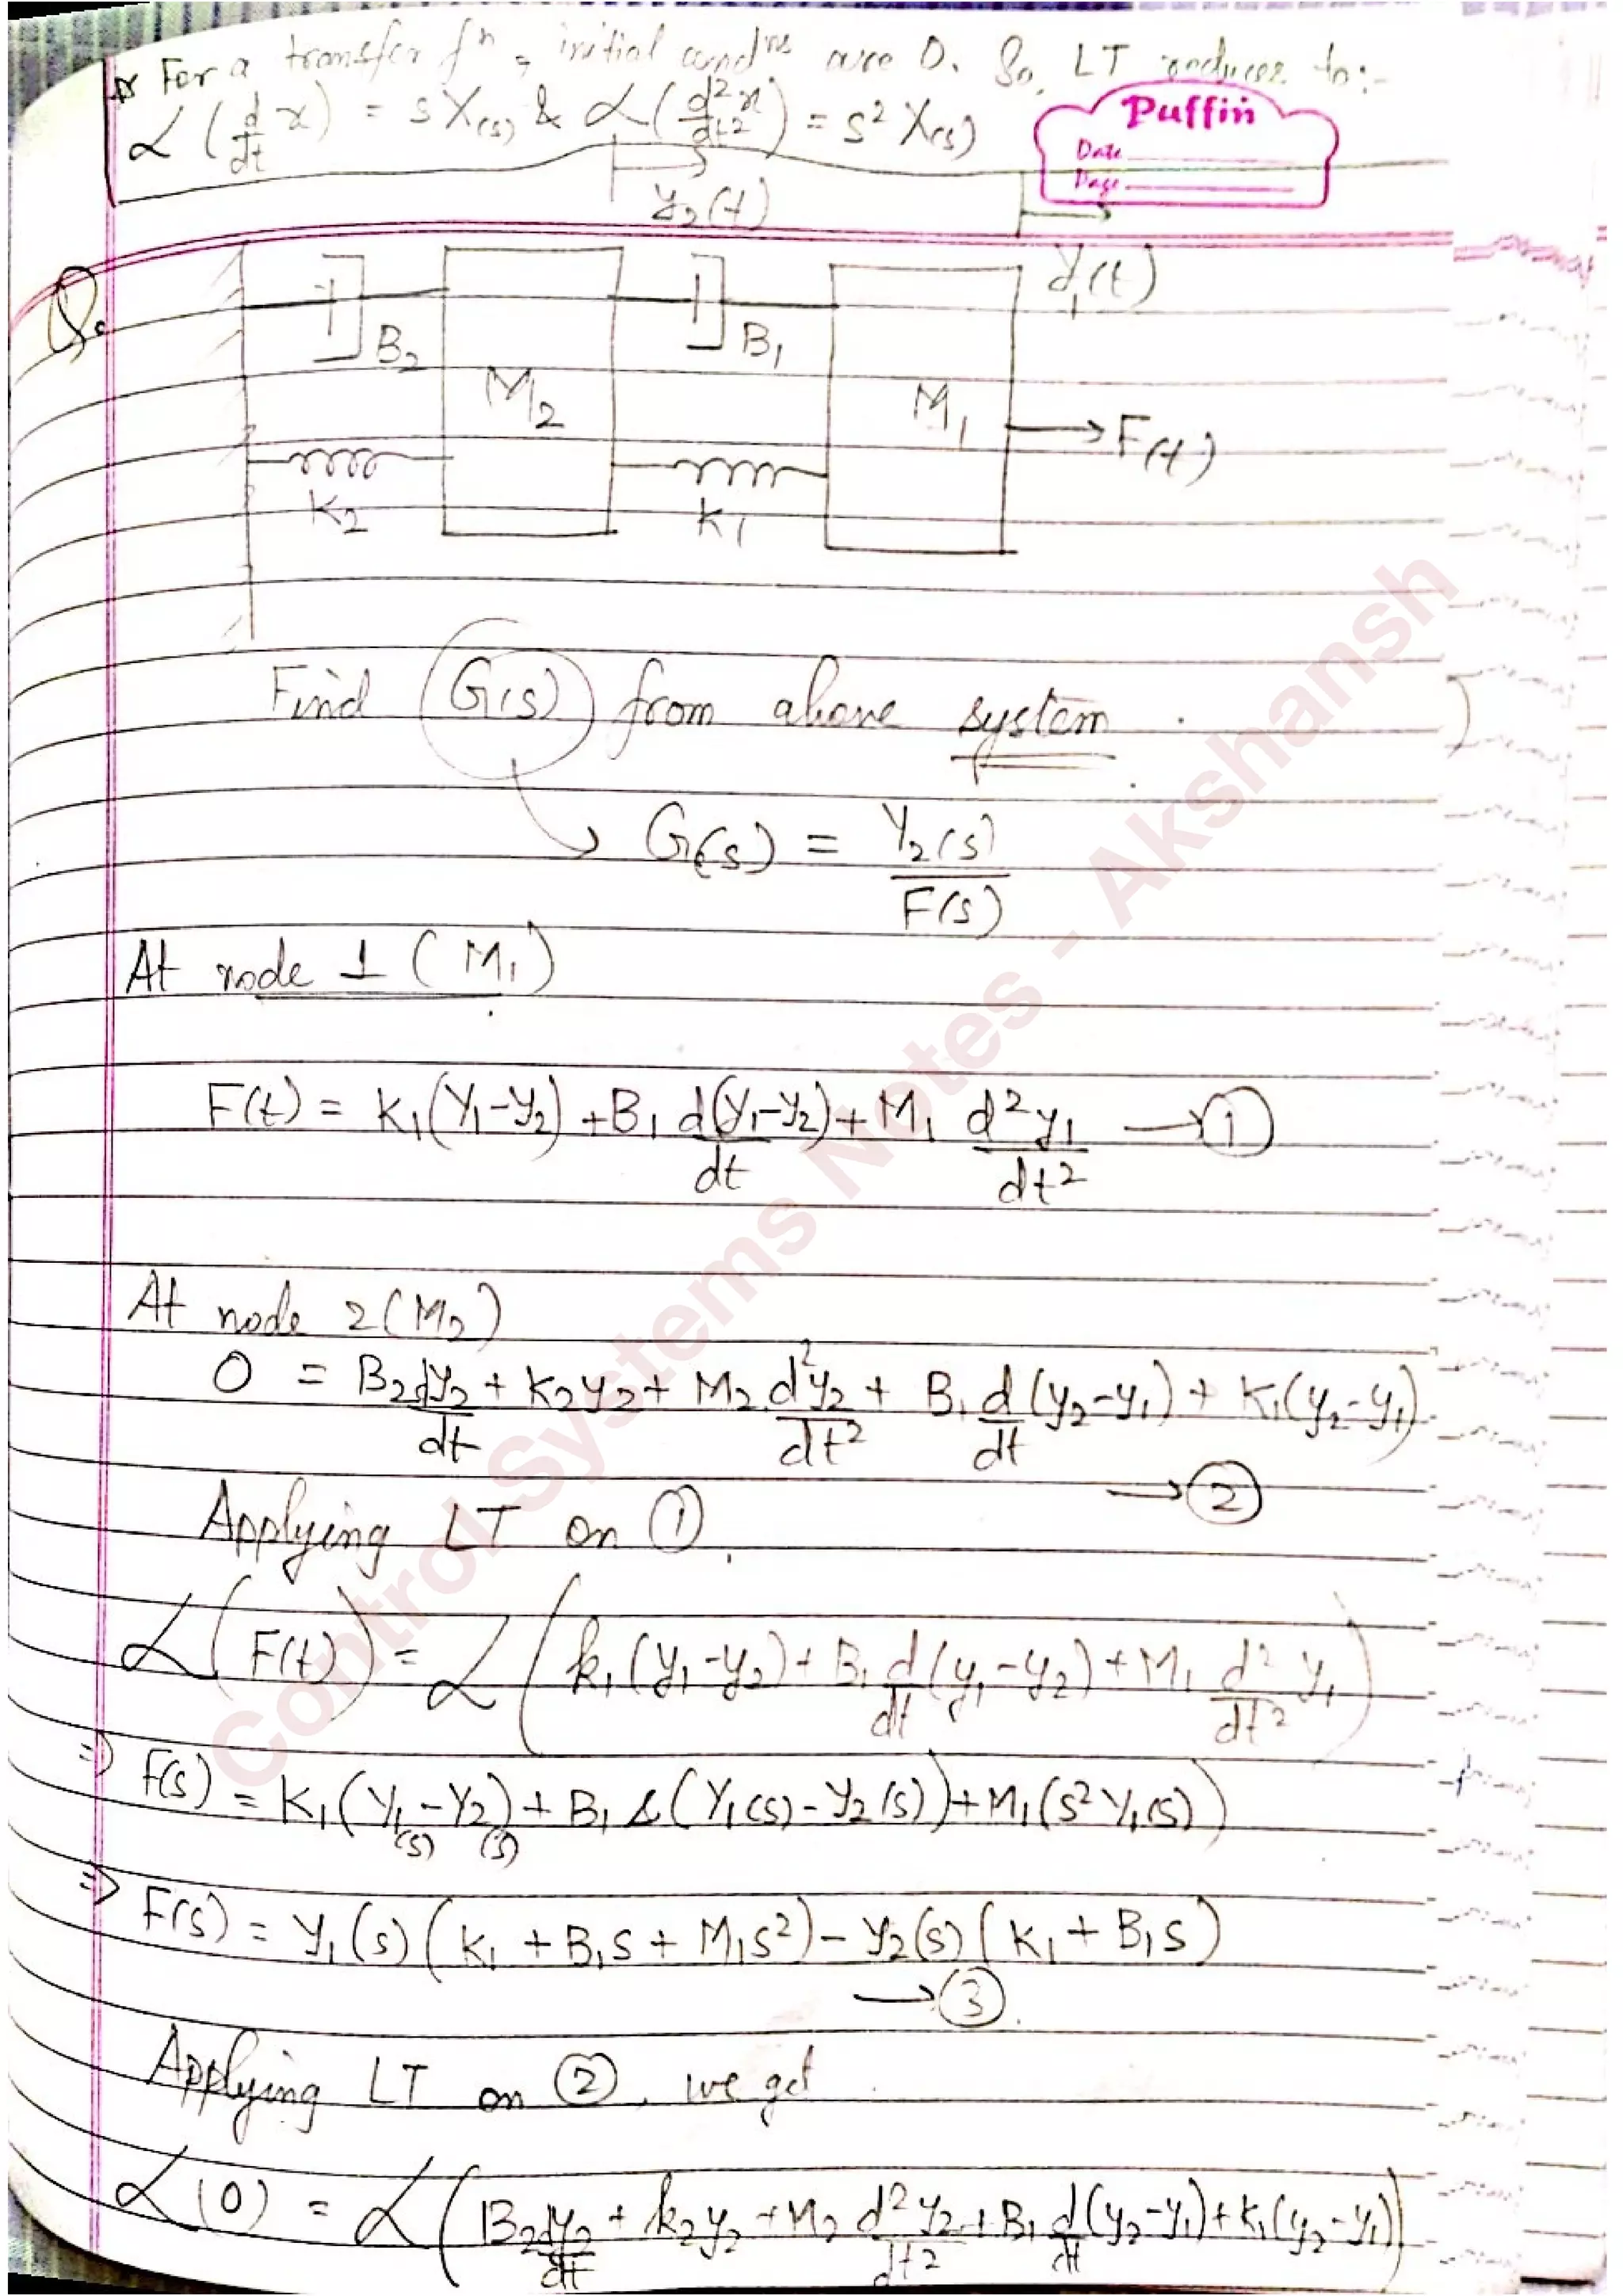 ☆ For a transfer fⁿ, initial condⁿˢ are 0. So, LT reduces to:-
ℒ(d/dt x) = sX(s) & ℒ(d²x/dt²) = s² X(s)
Puffin
Date
Page
y₂(t)
Q.
y₁(t)
B₂
B₁
M₂
M₁
F(t)
K₂
K₁
Find G(s) from above system.
G(s) = Y₂(s)/F(s)
At node 1 (M₁)
F(t) = K₁(y₁-y₂) + B₁ d(y₁-y₂)/dt + M₁ d²y₁/dt² → ①
At node 2 (M₂)
0 = B₂ dy₂/dt + K₂y₂ + M₂ d²y₂/dt² + B₁ d/dt (y₂-y₁) + K₁(y₂-y₁)
→ ②
Applying LT on ①.
ℒ(F(t)) = ℒ(k₁(y₁-y₂) + B₁ d/dt (y₁-y₂) + M₁ d²/dt² y₁)
⇒ F(s) = K₁(Y₁(s) - Y₂(s)) + B₁ s(Y₁(s) - Y₂(s)) + M₁(s² Y₁(s))
⇒ F(s) = Y₁(s)(K₁ + B₁s + M₁s²) - Y₂(s)(K₁ + B₁s)
→ ③
Applying LT on ②, we get
ℒ(0) = ℒ(B₂ dy₂/dt + k₂y₂ + M₂ d²y₂/dt² + B₁ d/dt (y₂-y₁) + K₁(y₂-y₁))
Control Systems Notes - Akshansh